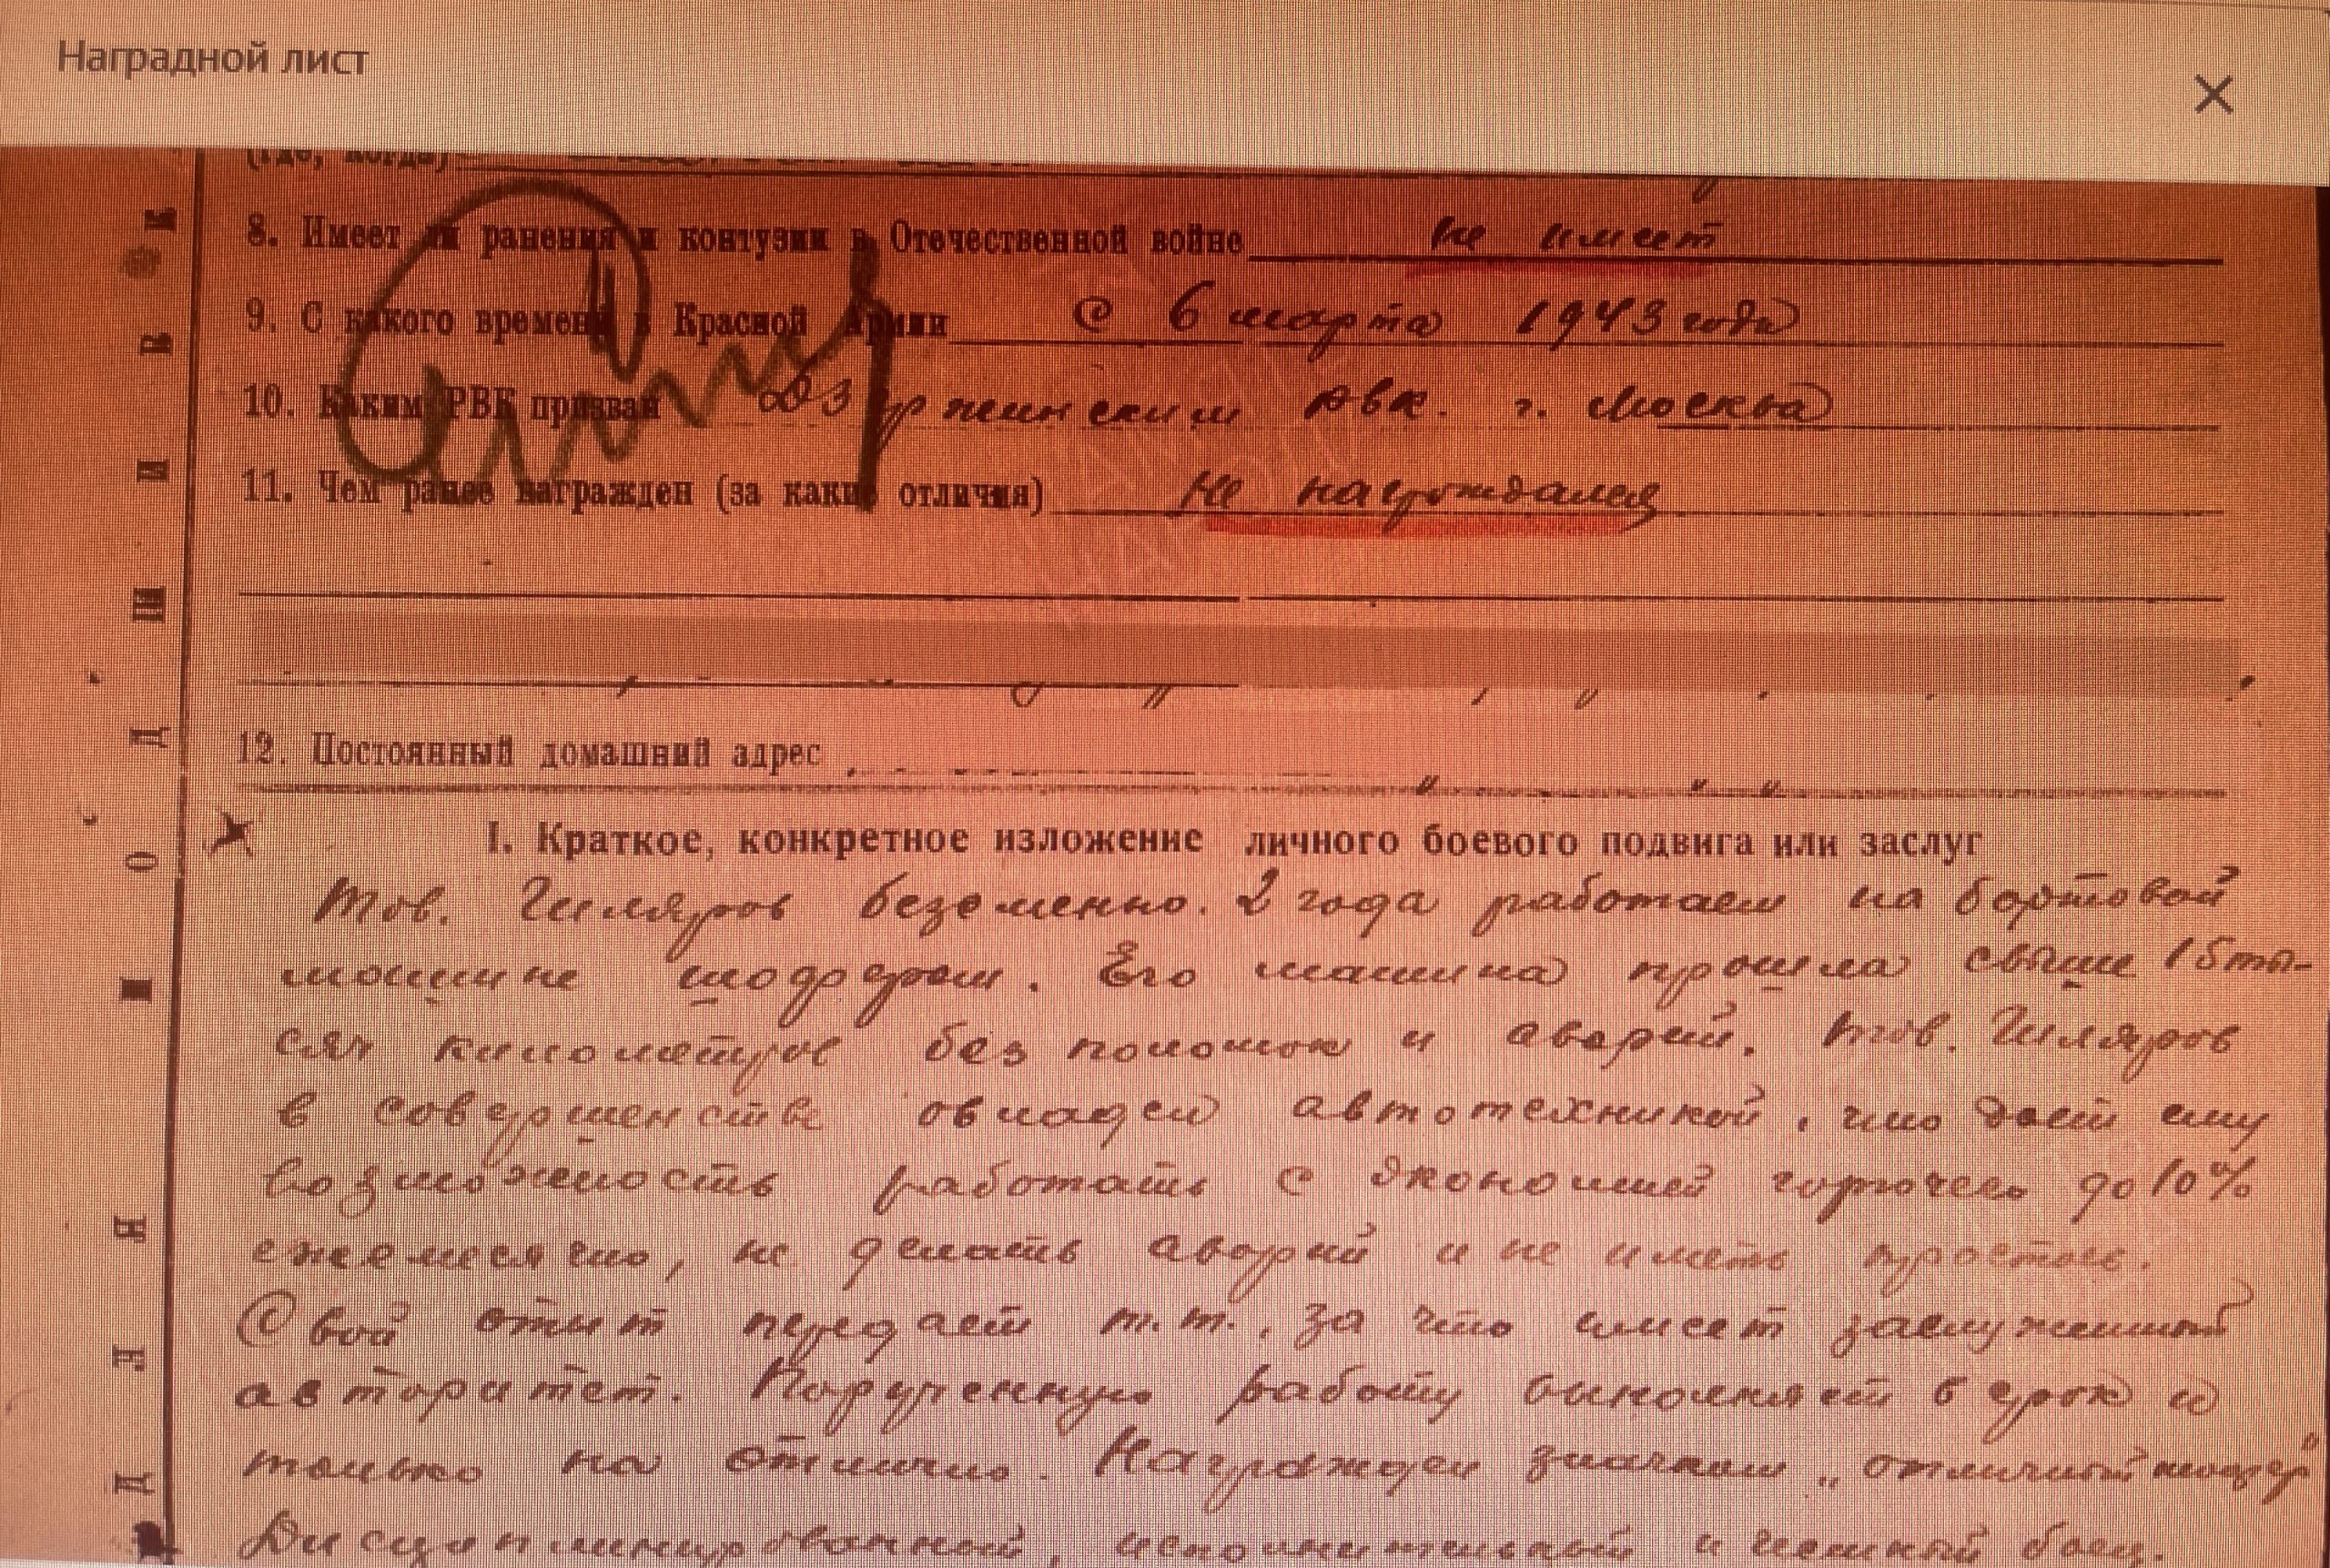 Наградной лист
×
(где, когда)
8. Имеет ли ранения и контузии в Отечественной войне не имеет
9. С какого времени в Красной Армии с 6 марта 1943 года
10. Каким РВК призван Дзержинским РВК. г. Москва
11. Чем ранее награжден (за какие отличия) Не награждался
12. Постоянный домашний адрес
I. Краткое, конкретное изложение личного боевого подвига или заслуг
Тов. Гиляров безсменно. 2 года работает на бортовой
машине шофером. Его машина прошла свыше 15 ты-
сяч километров без поломок и аварий. Тов. Гиляров
в совершенстве овладел автотехникой, что дает ему
возможность работать с экономией горючего до 10%
ежемесячно, не делать аварий и не иметь простоев.
Свой опыт передает т.т., за что имеет заслуженный
авторитет. Порученную работу выполняет в срок и
только на отлично. Награжден значком „отличный шофер"
Дисциплинированный, исполнительный и честный боец.